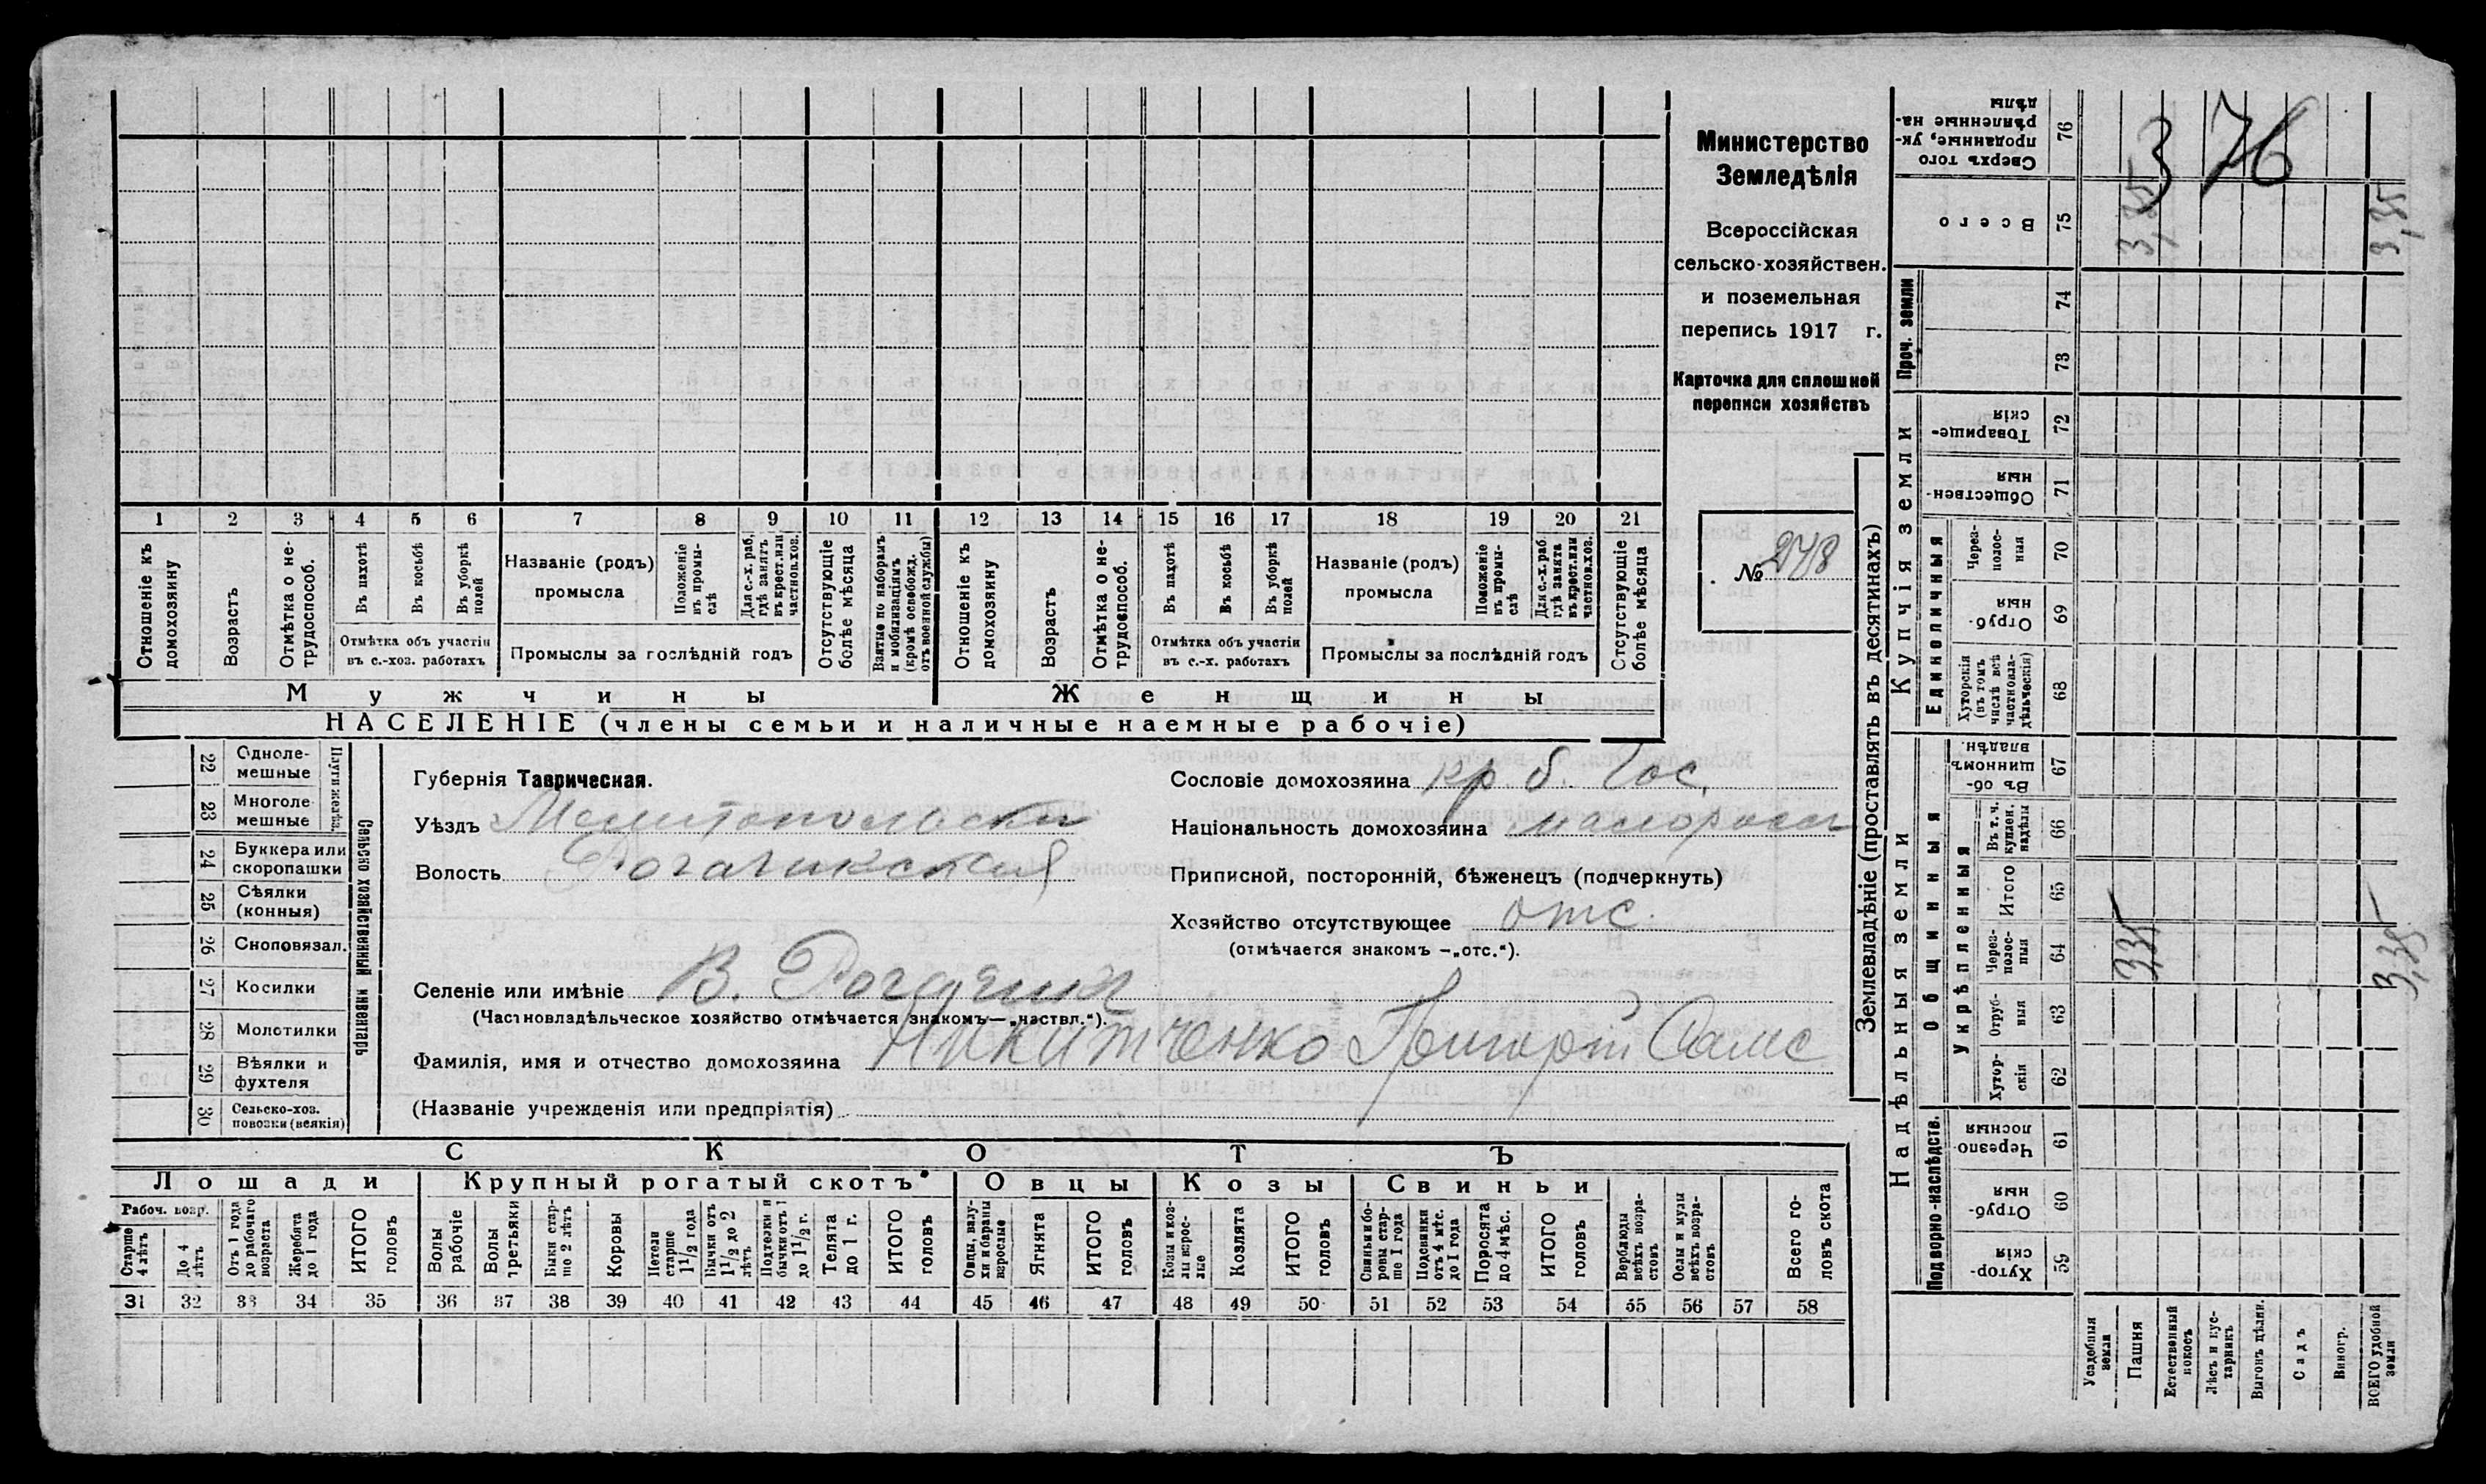 Министерство
Земледѣлія
Всероссійская
сельско-хозяйствен.
и поземельная
перепись 1917 г.
Карточка для сплошной
переписи хозяйствъ
№ 248
376
1 2 3 4 5 6 7 8 9 10 11 12 13 14 15 16 17 18 19 20 21
Отношеніе къ домохозяину
Возрастъ
Отмѣтка о не-трудоспособ.
Въ пахотѣ
Въ косьбѣ
Въ уборкѣ полей
Отмѣтка объ участіи въ с.-хоз. работахъ
Названіе (родъ) промысла
Положеніе въ промы-слѣ
Для с.-х. раб, гдѣ занятъ въ крест. или частнов. хоз.
Промыслы за послѣдній годъ
Отсутствующіе болѣе мѣсяца
Взятые по наборамъ и мобилизаціямъ (кромѣ освобожд. отъ военной службы)
Отношеніе къ домохозяину
Возрастъ
Отмѣтка о не-трудоспособ.
Въ пахотѣ
Въ косьбѣ
Въ уборкѣ полей
Отмѣтка объ участіи въ с.-х. работахъ
Названіе (родъ) промысла
Положеніе въ промы-слѣ
Для с.-х. раб. гдѣ занята въ крест. или частнов. хоз.
Промыслы за послѣдній годъ
Отсутствующіе болѣе мѣсяца
Мужчины Женщины
НАСЕЛЕНІЕ (члены семьи и наличные наемные рабочіе)
Сельско хозяйственный инвентарь
Плуги желѣз.
22 Одноле-мешные
23 Многоле-мешные
24 Буккера или скоропашки
25 Сѣялки (конныя)
26 Сноповязал.
27 Косилки
28 Молотилки
29 Вѣялки и фухтеля
30 Сельско-хоз. повозки (всякія)
Губернія Таврическая.
Уѣздъ Мелитопольскій
Волость Рогачикская
Сословіе домохозяина кр. б. Гос.
Національность домохозяина малоросс
Приписной, посторонній, бѣженецъ (подчеркнуть)
Хозяйство отсутствующее отс.
(отмѣчается знакомъ —„отс.“).
Селеніе или имѣніе В. Рогачик
(Частновладѣльческое хозяйство отмѣчается знакомъ—„частвл.“).
Фамилія, имя и отчество домохозяина Никитченко Григорій Самс
(Названіе учрежденія или предпріятія)
СКОТЪ
Лошади Крупный рогатый скотъ Овцы Козы Свиньи
Рабоч. возр.
Старше 4 лѣтъ
До 4 лѣтъ
Отъ 1 года до рабочаго возраста
Жеребята до 1 года
ИТОГО головъ
Волы рабочіе
Волы третьяки
Быки стар-ше 2 лѣтъ
Коровы
Нетели старше 1 1/2 года
Бычки отъ 1 1/2 до 2 лѣтъ
Подтелки и бычки отъ 1 до 1 1/2 г.
Телята до 1 г.
ИТОГО головъ
Овцы, валу-хи и бараны взрослые
Ягнята
ИТОГО головъ
Козы и коз-лы взрос-лые
Козлята
ИТОГО головъ
Свиньи и бо-ровы стар-ше 1 года
Подсвинки отъ 4 мѣс. до 1 года
Поросята до 4 мѣс.
ИТОГО головъ
Верблюды всѣхъ возра-стовъ
Ослы и мулы всѣхъ возра-стовъ
Всего го-ловъ скота
31 32 33 34 35 36 37 38 39 40 41 42 43 44 45 46 47 48 49 50 51 52 53 54 55 56 57 58
Землевладѣніе (проставлять въ десятинахъ)
Надѣльныя земли
Купчія земли
Проч. земли
Подворно-наслѣдств.
Общинныя
Укрѣпленныя
Единоличныя
Сверхъ того проданные, ук-рѣпленные на-дѣлы 76
Всего 75 3,35 3,35
74
73
Товарище-скія 72
Обществен-ныя 71
Через-полос-ныя 70
Отруб-ныя 69
Хуторскія (въ томъ числѣ всѣ частновла-дѣльческія) 68
Въ об-щинномъ владѣн. 67
Въ т. ч. куплен. надѣлы 66
Итого 65
Через-полос-ныя 64 3,35 3,35
Отруб-ныя 63
Хутор-скія 62
Черезпо-лосныя 61
Отруб-ныя 60
Хутор-скія 59
Усадебныя земли
Пашня
Естественный покосъ
Лѣсъ и кус-тарникъ
Выгонъ цѣлин.
Садъ
Виногр.
ВСЕГО удобной земли